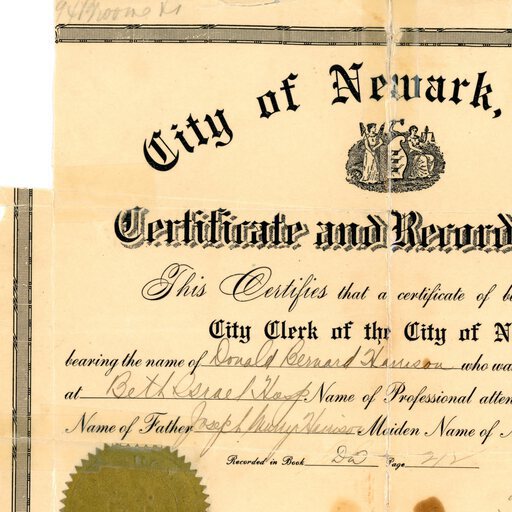 City of Newark,
Certificate and Record
This Certifies that a certificate of b
City Clerk of the City of N
bearing the name of Donald Bernard Harrison who wa
at Beth Israel Hosp Name of Professional atten
Name of Father Joseph Harrison Maiden Name of
Recorded in Book Page 212